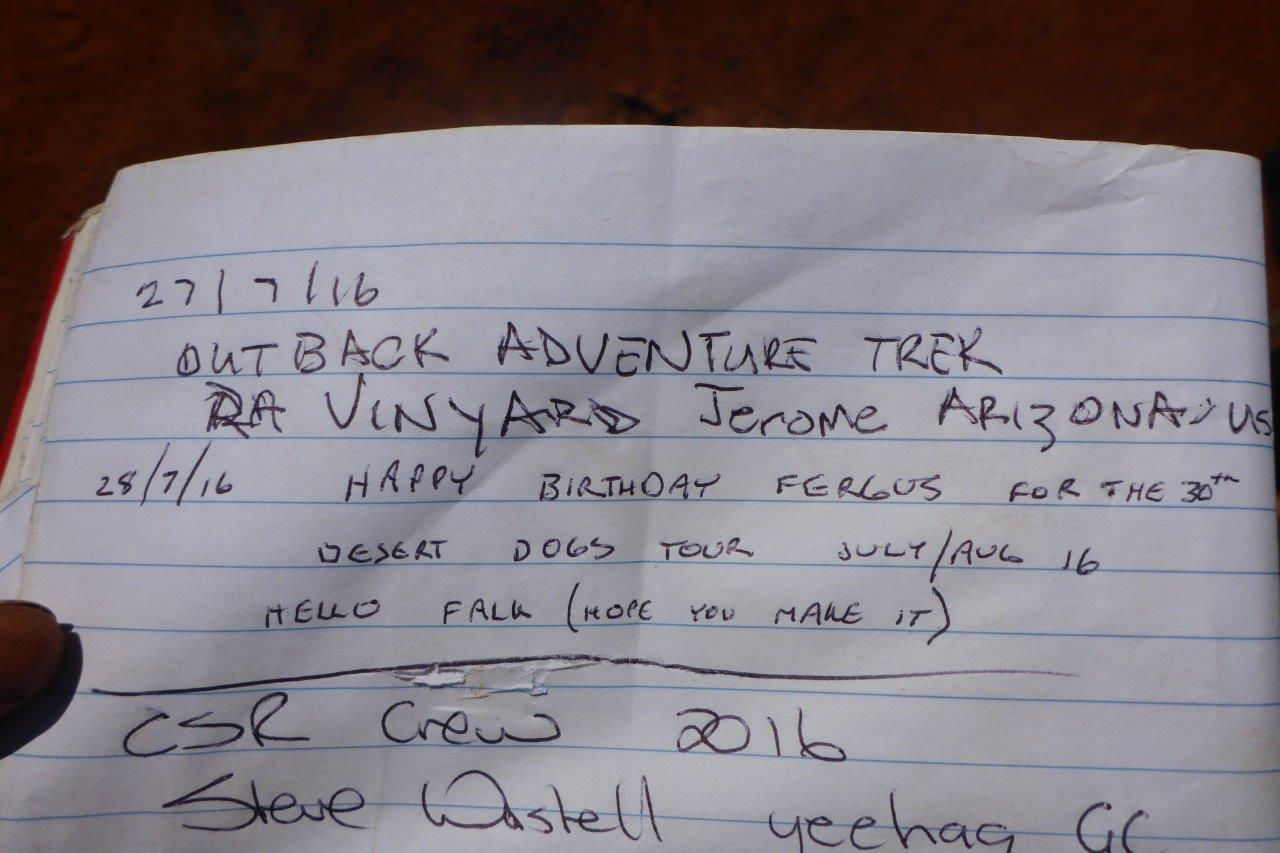 27/7/16
OUTBACK ADVENTURE TREK
RA VINYARD Jerome ARIZONA, US
28/7/16 HAPPY BIRTHDAY FERGUS FOR THE 30th
DESERT DOGS TOUR JULY/AUG 16
HELLO FALK (HOPE YOU MAKE IT)
CSR Crew 2016
Steve Wastell yeehaa GC